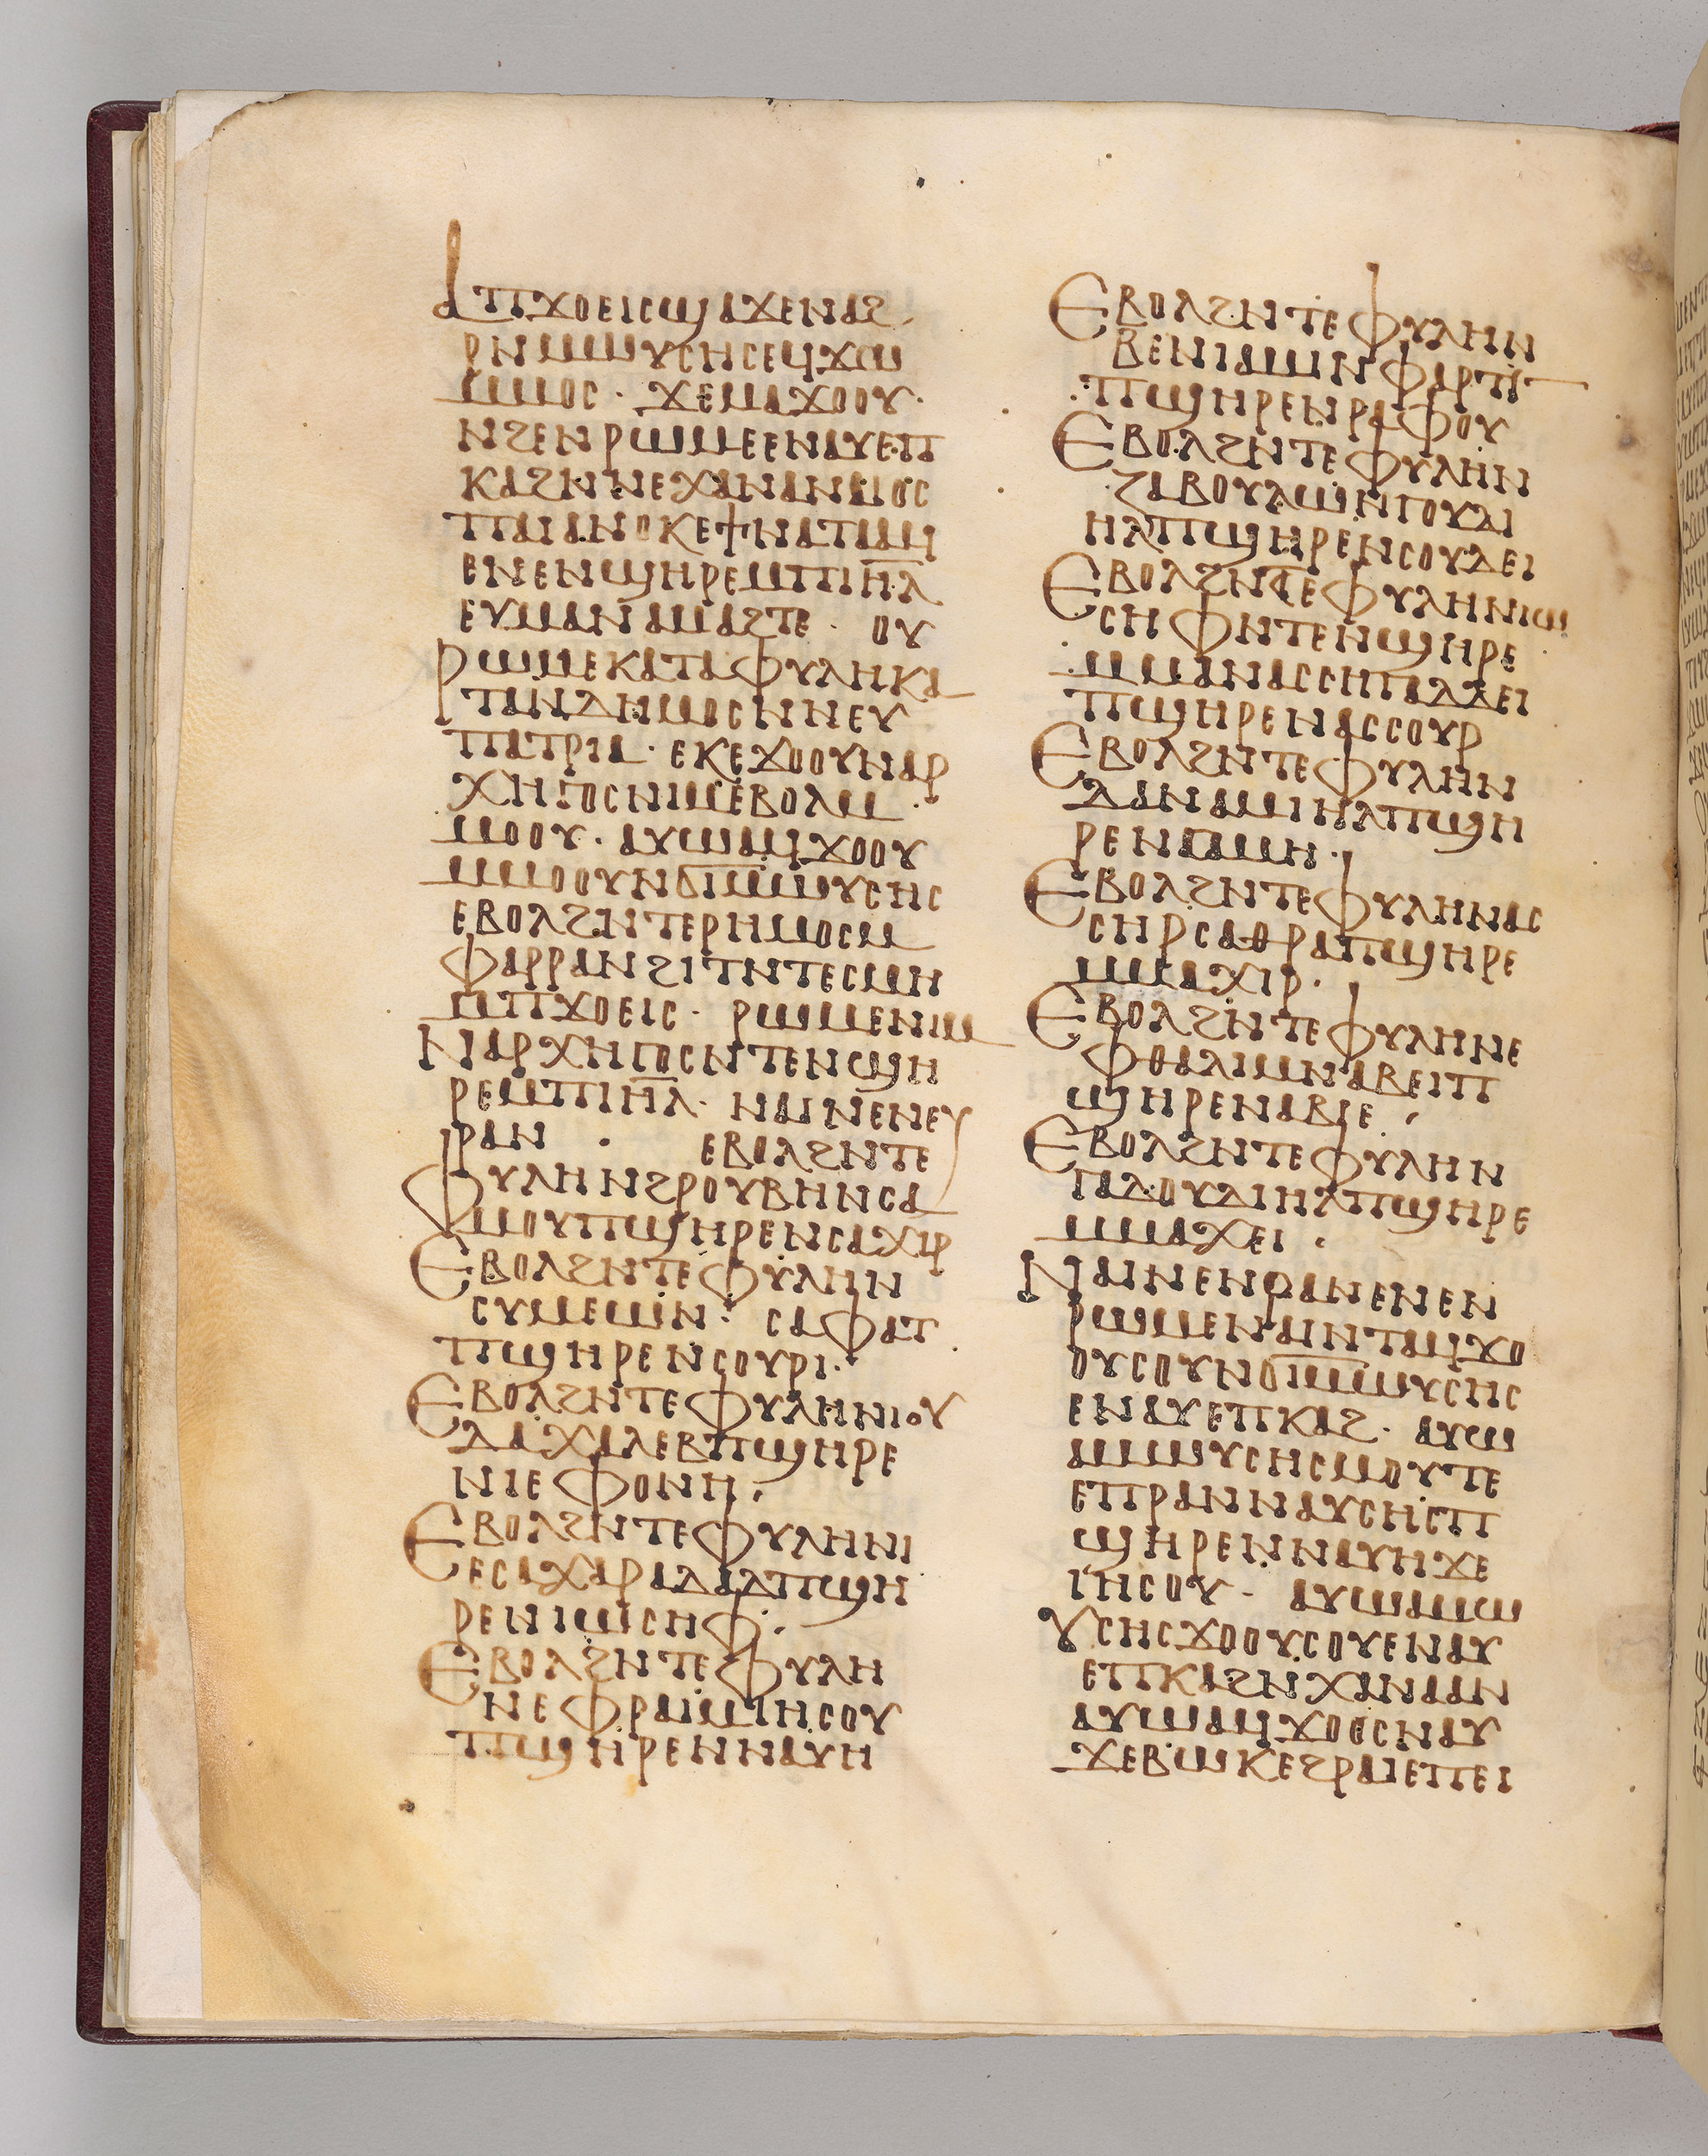 ⲁⲡϫⲟⲉⲓⲥϣⲁϫⲉⲛⲁϩ
ⲣⲛⲙⲙⲱⲩⲥⲏⲥⲉϥϫⲱ
ⲙⲙⲟⲥ · ϫⲉⲙⲁϫⲟⲟⲩ ·
ⲛϩⲉⲛⲣⲱⲙⲉⲉⲛⲁⲩⲉⲡ
ⲕⲁϩⲛⲛⲉⲭⲁⲛⲁⲛⲁⲓⲟⲥ
ⲡⲁⲓⲁⲛⲟⲕⲉϯⲛⲁⲧⲁⲁϥ
ⲉⲛⲉⲛϣⲏⲣⲉⲙⲡⲓⲏ̅ⲗ
ⲉⲩⲙⲁⲛⲁⲙⲁϩⲧⲉ · ⲟⲩ
ⲣⲱⲙⲉⲕⲁⲧⲁⲫⲩⲗⲏⲕⲁ
ⲧⲁⲛⲇⲏⲙⲟⲥⲛⲛⲉⲩ
ⲡⲁⲧⲣⲓⲁ · ⲉⲕⲉϫⲟⲟⲩⲛⲁⲣ
ⲭⲏⲅⲟⲥⲛⲓⲙⲉⲃⲟⲗⲙ
ⲙⲟⲟⲩ · ⲁⲩⲱⲁϥϫⲟⲟⲩ
ⲙⲙⲟⲟⲩⲛϭⲓⲙⲙⲱⲩⲥⲏⲥ
ⲉⲃⲟⲗϩⲛⲧⲉⲣⲏⲙⲟⲥⲙ
ⲫⲁⲣⲣⲁⲛϩⲓⲧⲛⲧⲉⲥⲙⲏ
ⲙⲡϫⲟⲉⲓⲥ · ⲣⲱⲙⲉⲛⲓⲙ
ⲛⲁⲣⲭⲏⲅⲟⲥⲛⲧⲉⲛϣⲏ
ⲣⲉⲙⲡⲓⲏ̅ⲗ · ⲛⲁⲓⲛⲉⲛⲉⲩ
ⲣⲁⲛ · ⲉⲃⲟⲗϩⲛⲧⲉ
ⲫⲩⲗⲏⲛϩⲣⲟⲩⲃⲏⲛⲥⲁ
ⲙⲟⲩⲡϣⲏⲣⲉⲛⲥⲁⲭⲓⲣ
ⲉⲃⲟⲗϩⲛⲧⲉⲫⲩⲗⲏⲛ
ⲥⲩⲙⲉⲱⲛ · ⲥⲁⲫⲁⲧ
ⲡϣⲏⲣⲉⲛⲥⲟⲩⲣⲓ ·
ⲉⲃⲟⲗϩⲛⲧⲉⲫⲩⲗⲏⲛⲓⲟⲩ
ⲇⲁⲭⲁⲗⲉⲃⲡϣⲏⲣⲉ
ⲛⲓⲉⲫⲟⲛⲏ ·
ⲉⲃⲟⲗϩⲛⲧⲉⲫⲩⲗⲏⲛⲓ
ⲉⲥⲁⲭⲁⲣⲁⲇⲁⲇⲡϣⲏ
ⲣⲉⲛⲓⲱⲥⲏⲫ ·
ⲉⲃⲟⲗϩⲛⲧⲉⲫⲩⲗⲏ
ⲛⲉⲫⲣⲁⲓⲙⲓⲏⲥⲟⲩ
ⲡϣⲏⲣⲉⲛⲛⲁⲩⲏ
ⲉⲃⲟⲗϩⲛⲧⲉⲫⲩⲗⲏⲛ
ⲃⲉⲛⲓⲁⲙⲓⲛⲫⲁⲣⲧⲓ
ⲡϣⲏⲣⲉⲛⲣⲁⲫⲟⲩ
ⲉⲃⲟⲗϩⲛⲧⲉⲫⲩⲗⲏⲛ
ⲍⲁⲃⲟⲩⲗⲱⲛⲅⲟⲩⲇⲓ
ⲏⲗⲡϣⲏⲣⲉⲛⲥⲟⲩⲇⲉⲓ
ⲉⲃⲟⲗϩⲛⲧⲉⲫⲩⲗⲏⲛⲓⲱ
ⲥⲏⲫⲛⲧⲉⲛϣⲏⲣⲉ
ⲙⲙⲁⲛⲁⲥⲥⲏⲅⲁⲇⲇⲉⲓ
ⲡϣⲏⲣⲉⲛⲁⲥⲥⲟⲩⲣ
ⲉⲃⲟⲗϩⲛⲧⲉⲫⲩⲗⲏⲛ
ⲇⲁⲛⲁⲙⲓⲏⲗⲡϣⲏ
ⲣⲉⲛⲅⲁⲙⲏ ·
ⲉⲃⲟⲗϩⲛⲧⲉⲫⲩⲗⲏⲛⲁⲥ
ⲥⲏⲣⲥⲁⲑⲣⲁⲡϣⲏⲣⲉ
ⲙⲙⲁⲭⲓⲣ ·
ⲉⲃⲟⲗϩⲛⲧⲉⲫⲩⲗⲏⲛⲉ
ⲫⲑⲁⲗⲓⲙⲛⲁⲃⲉⲓⲡ
ϣⲏⲣⲉⲛⲁⲃⲓⲉ ·
ⲉⲃⲟⲗϩⲛⲧⲉⲫⲩⲗⲏⲛ
ⲅⲁⲇⲟⲩⲇⲓⲏⲗⲡϣⲏⲣⲉ
ⲙⲙⲁⲭⲉⲓ ·
ⲛⲁⲓⲛⲉⲛⲣⲁⲛⲉⲛⲉⲛ
ⲣⲱⲙⲉⲛⲁⲓⲛⲧⲁϥϫⲟ
ⲟⲩⲥⲟⲩⲛϭⲓⲙⲙⲱⲩⲥⲏⲥ
ⲉⲛⲁⲩⲉⲡⲕⲁϩ · ⲁⲩⲱ
ⲁⲙⲱⲩⲥⲏⲥⲙⲟⲩⲧⲉ
ⲉⲡⲣⲁⲛⲛⲁⲩⲥⲏⲥⲡ
ϣⲏⲣⲉⲛⲛⲁⲩⲏϫⲉ
ⲓⲏⲥⲟⲩ · ⲁⲩⲱⲁⲙⲱ
ⲩⲥⲏⲥϫⲟⲟⲩⲥⲟⲩⲉⲛⲁⲩ
ⲉⲡⲕⲁϩⲛⲭⲁⲛⲁⲁⲛ
ⲁⲩⲱⲁϥϫⲟⲟⲥⲛⲁⲩ
ϫⲉⲃⲱⲕⲉϩⲣⲁⲓⲉⲡⲉⲓ